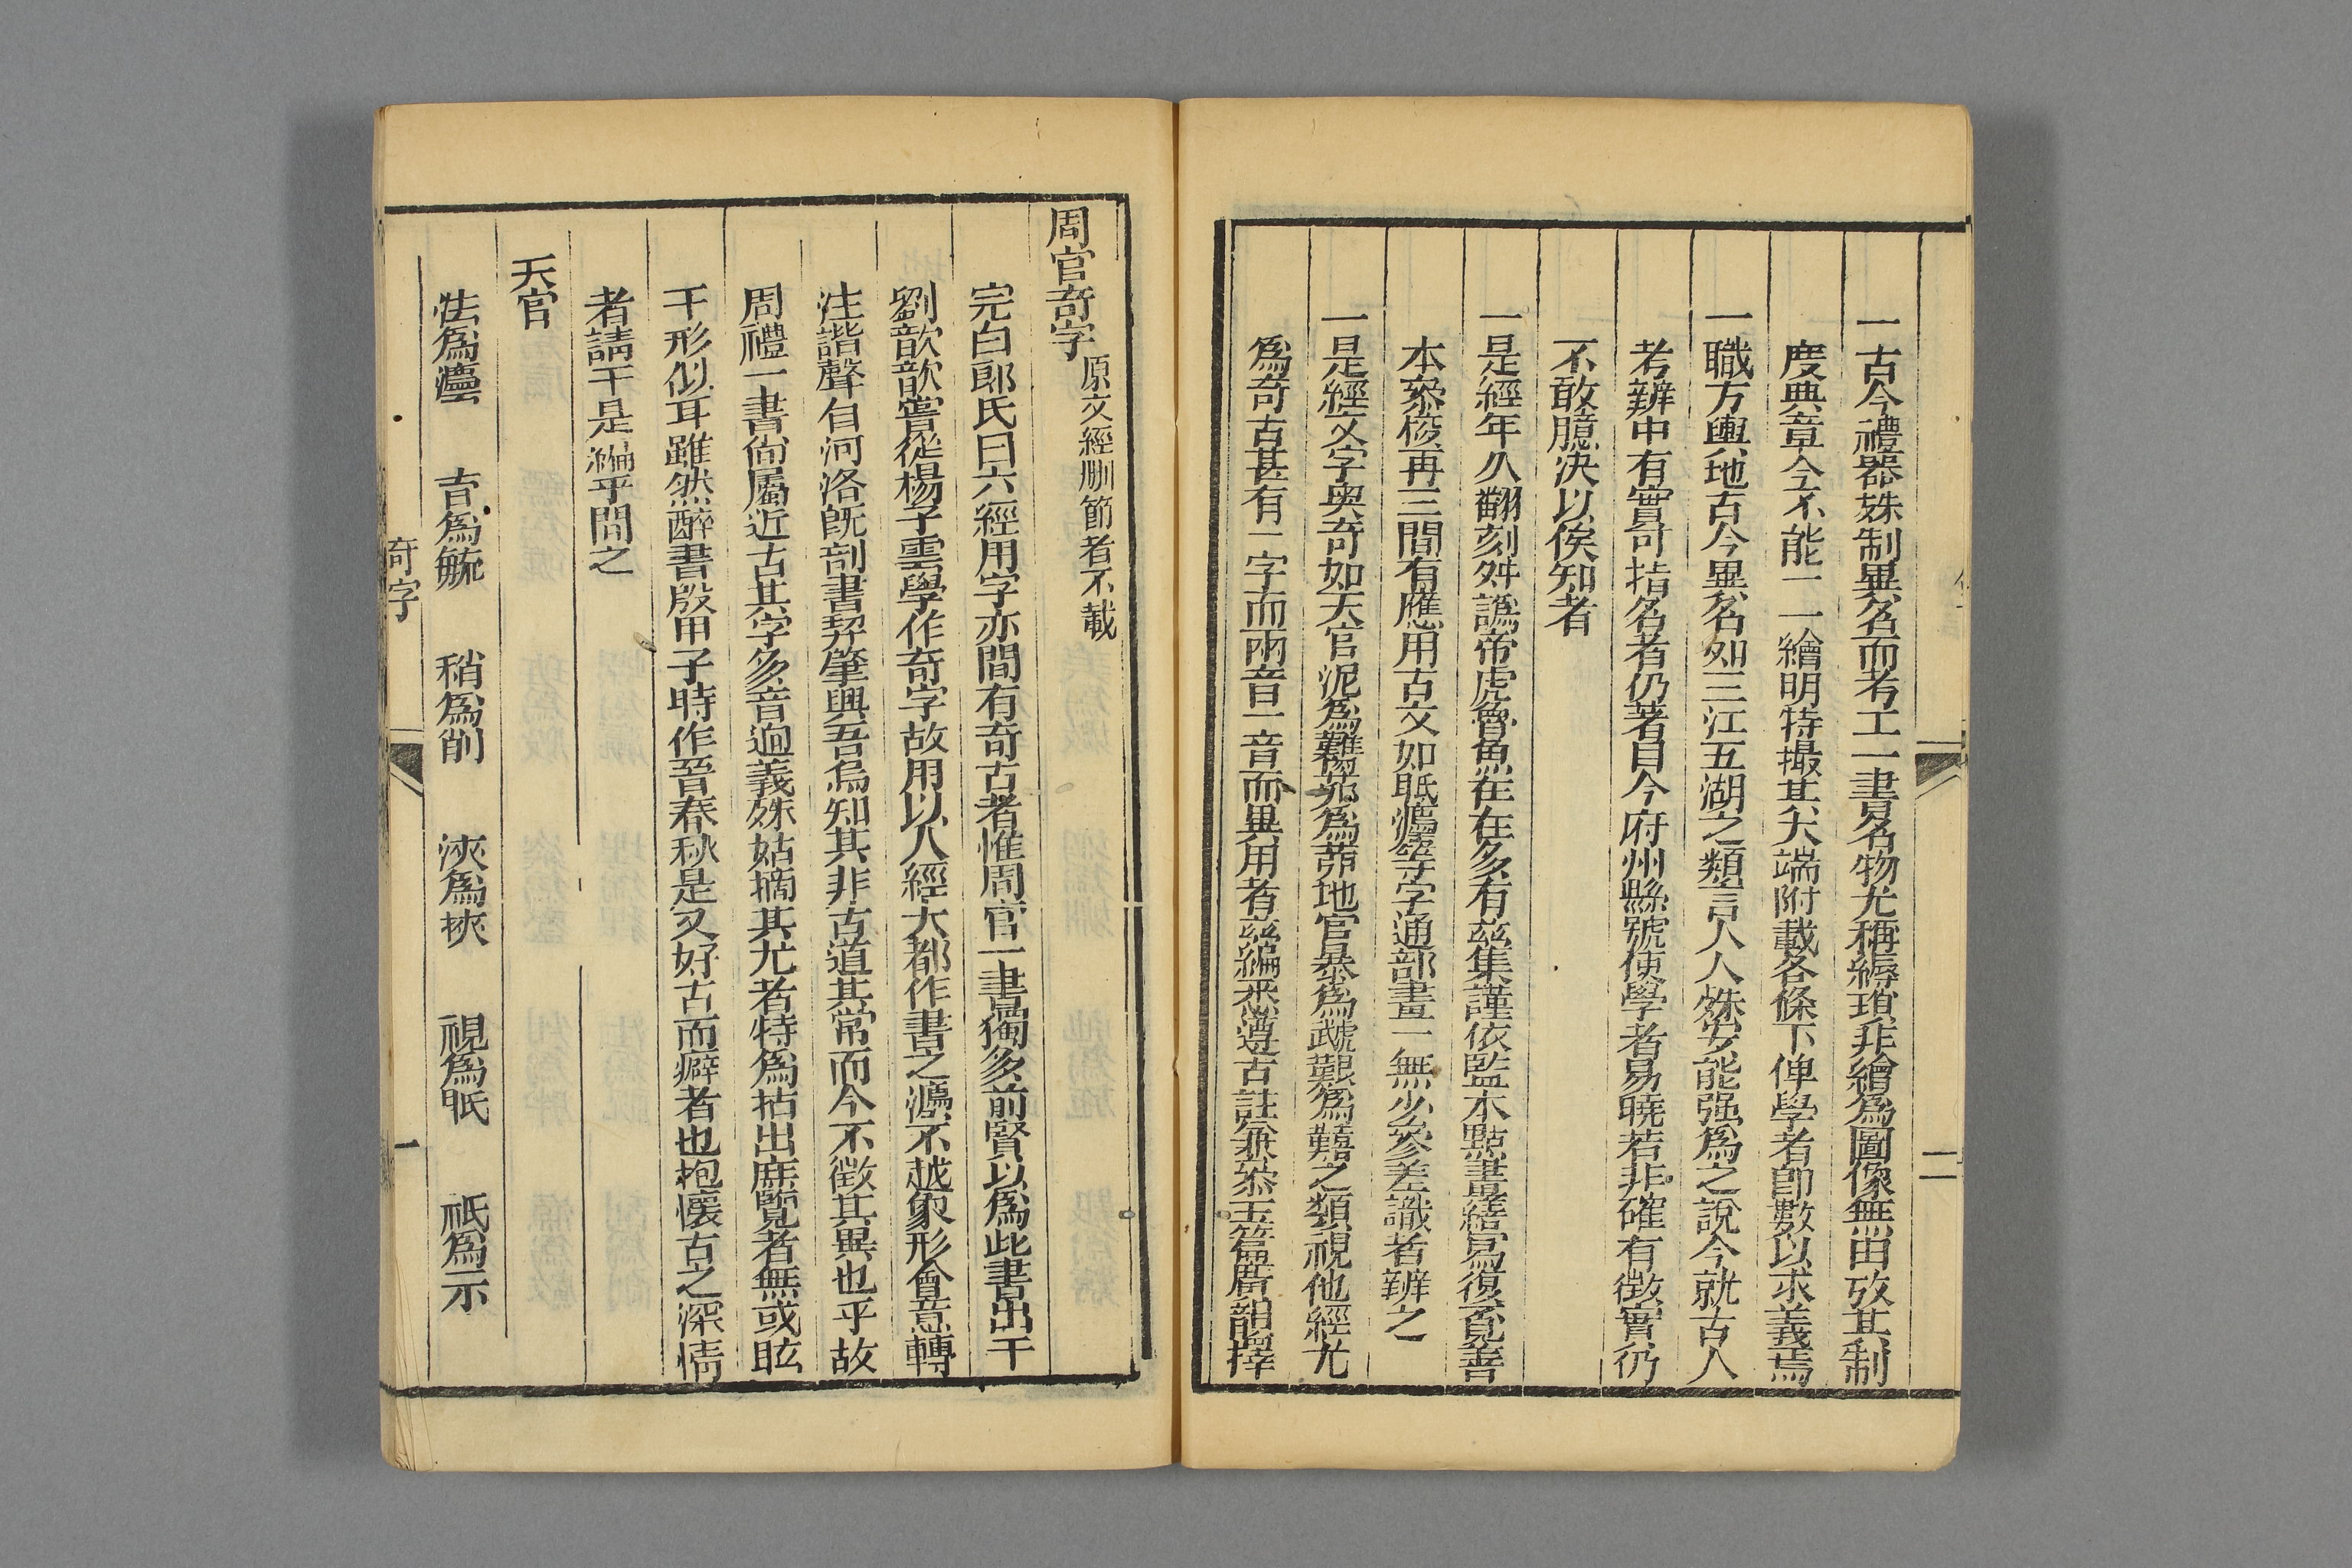 一古今禮器殊制異名而考工一書名物尤稱縟瑣非繪爲圖像無由攷其制
度典章今不能一一繪明特撮其大端附載各條下俾學者卽數以求義焉
一職方輿地古今異名如三江五湖之類言人人殊安能强爲之說今就古人
考辨中有實可指名者仍著目今府州縣號使學者易曉若非確有徵實仍
不敢臆決以俟知者
一是經年久翻刻舛譌帝虎魯魚在在多有兹集謹依監本點畫繕寫復覓善
本叅校再三間有應用古文如眡灋等字通部畫一無少參差識者辨之
一是經文字奥奇如天官泥爲難茆爲茆地官暴爲虣艱爲囏之類視他經尤
爲奇古甚有一字而兩音一音而異用者兹編悉遵古註兼叅玉篇廣韻擇
二
周官奇字 原文經刪節者不載
完白郎氏曰六經用字亦間有奇古者惟周官一書獨多前賢以爲此書出于
劉歆歆嘗從楊子雲學作奇字故用以入經大都作書之灋不越象形會意轉
注諧聲自河洛旣剖書契肇興吾烏知其非古道其常而今不徵其異也乎故
周禮一書尙屬近古其字多音迥義殊姑摘其尤者特爲拈出庶覽者無或眩
于形似耳雖然醉書殷甲子時作晉春秋是又好古而癖者也抱懷古之深情
者請于是編乎問之
天官
法爲灋 育爲毓 稍爲削 浹爲挾 視爲眡 祇爲示
奇字
一